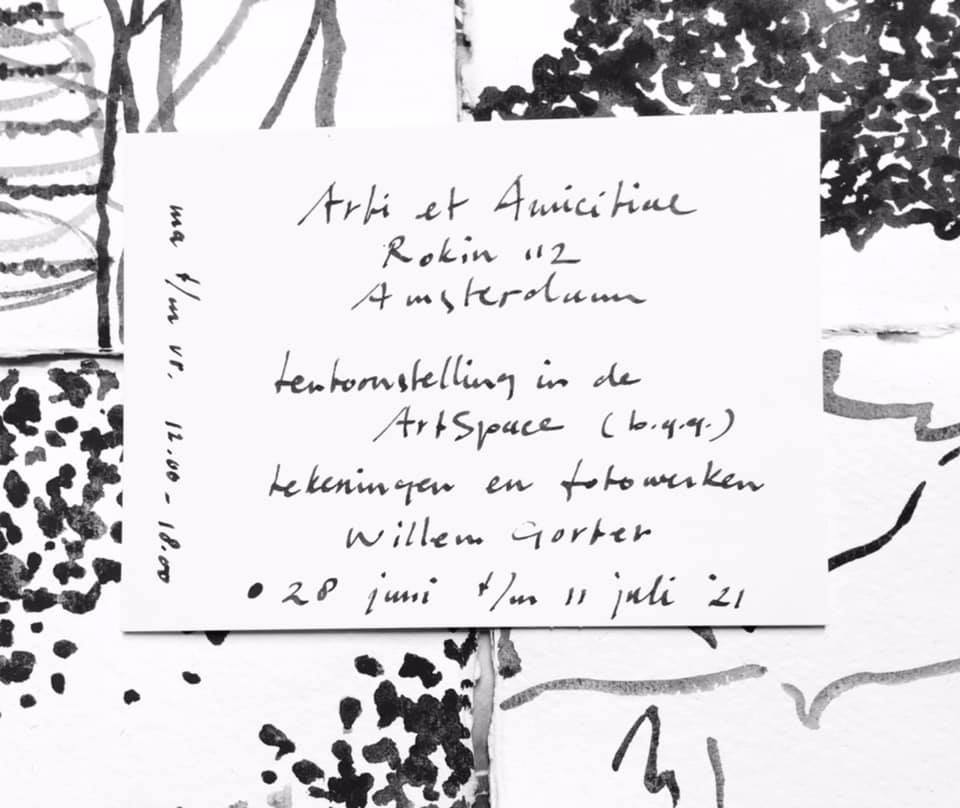 Arti et Amicitiae
Rokin 112
Amsterdam
tentoonstelling in de
ArtSpace (b.g.g.)
tekeningen en fotowerken
Willem Gorter
• 28 juni t/m 11 juli '21
ma t/m vr. 12.00 - 18.00